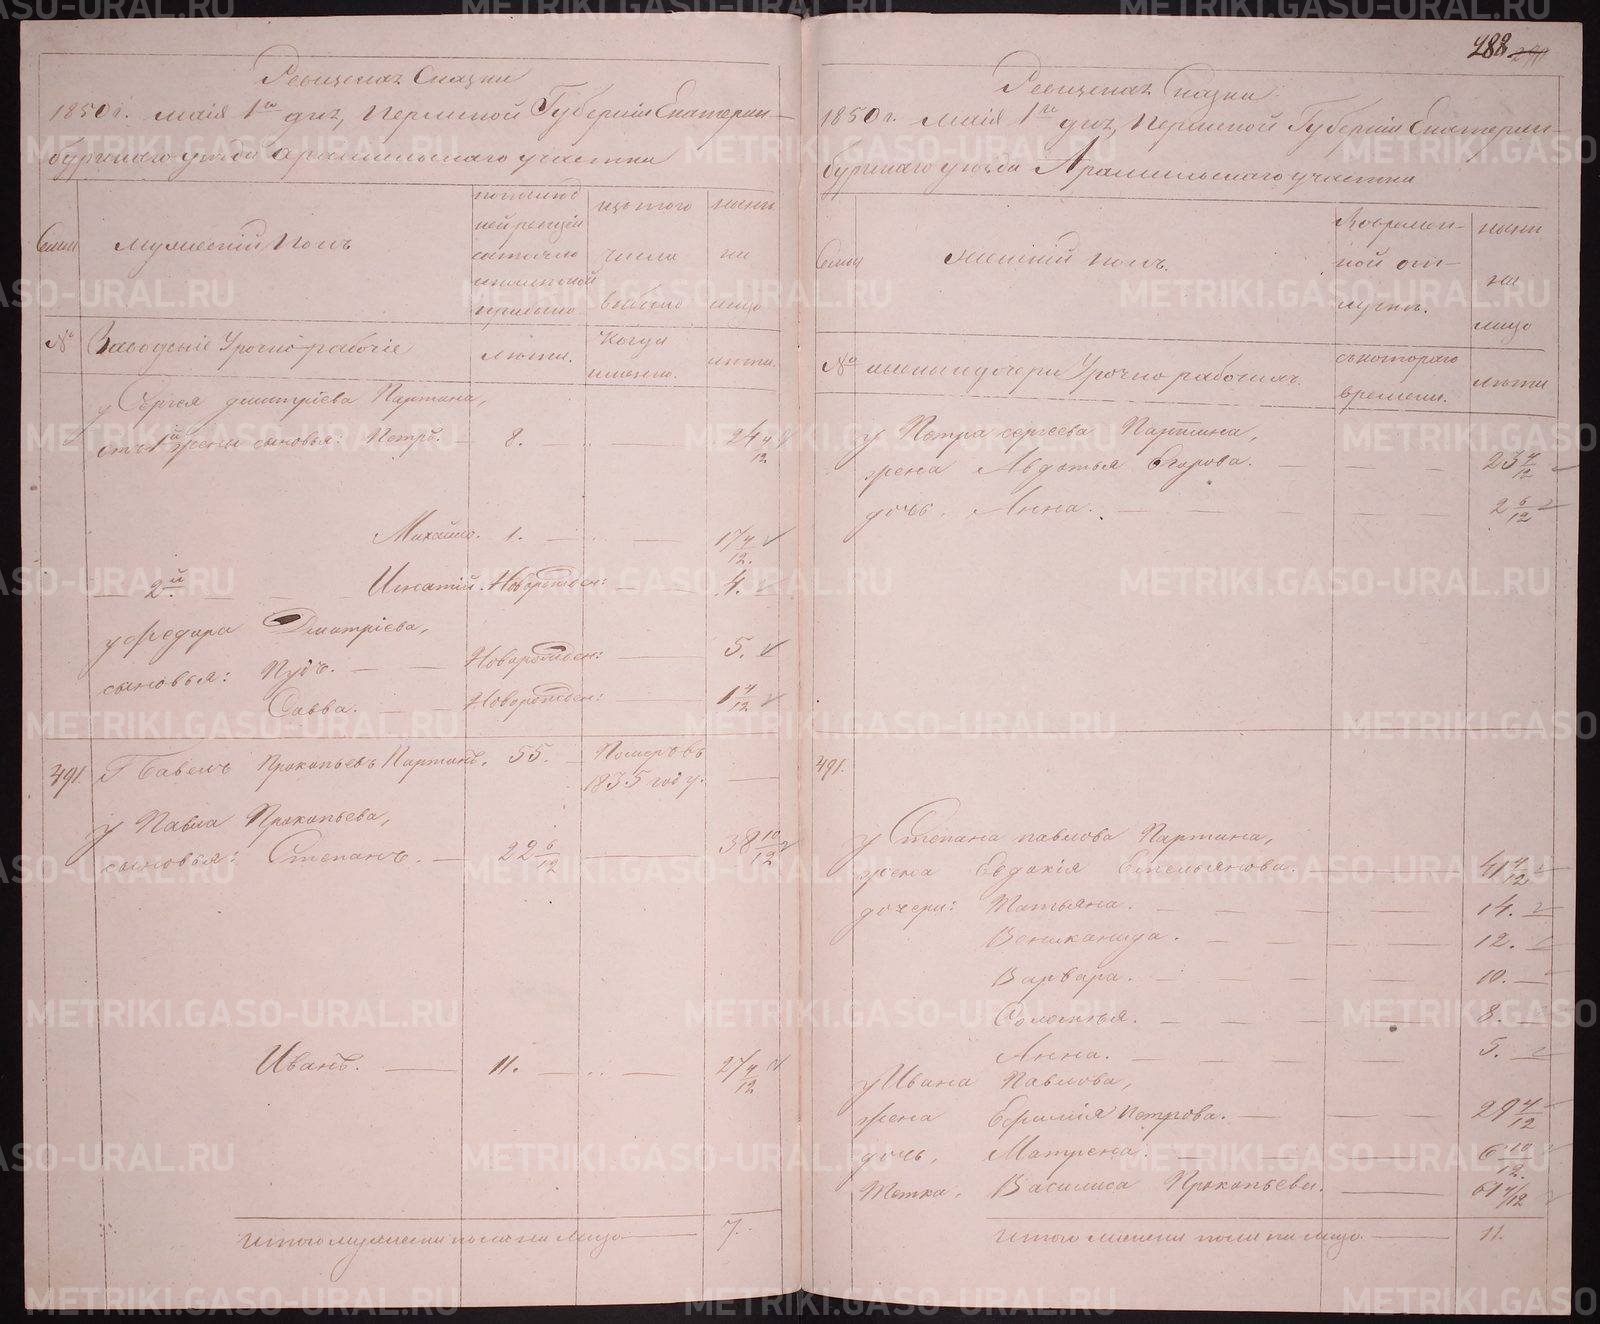 288
Ревизская Сказка
1850 г. маія 1го дня, Пермской Губерніи Екатерин-
бургского уезда Арамильского участка
Семьи
Мужескій полъ
по послед
ней ревизіи
состояло
и после оной
прибыло
изъ того
числа
выбыло
ныне
на
лицо
№
Заводскіе Урочно рабочіе
лета.
Когда
именно.
лета.
у Сергея Дмитріева Партина,
отъ 1й жены сыновья: Петръ. 8. 24 4/12
Михайло. 1. 17 4/12.
2й Игнатій. Новорожден: 4.
у Федора Дмитріева,
сыновья: Пудъ. Новорожден: 5.
Савва. Новорожден: 1 4/12
491. Павелъ Прокопьевъ Партинъ. 55. Померъ въ
1835 году.
у Павла Прокопьева,
сыновья: Степанъ. 22 6/12 38 10/12
Иванъ. 11. 27 4/12
Итого мужеска пола на лицо 7.
Ревизская Сказка
1850 г. маія 1го дня, Пермской Губерніи Екатерин-
бургского уезда Арамильского участка
Семьи
Женскій полъ.
Во времен-
ной от-
лучке.
ныне
на
лицо
№
жены и дочери Урочно рабочихъ.
съ котораго
времени.
лета
у Петра Сергеева Партина,
жена Авдотья Егорова. 23 4/12
дочь. Анна. 2 6/12
491.
у Степана Павлова Партина,
жена Евдокія Емельянова. 41 4/12
дочери: Татьяна. 14.
12.
Варвара. 10.
Соломнья. 8.
Анна. 5.
у Ивана Павлова,
жена Ефимія Петрова. 29 4/12
дочь, Матрена. 6 10/12.
Тетка, Василиса Прокопьева. 61 4/12
Итого женска пола на лицо 11.
METRIKI.GASO-URAL.RU